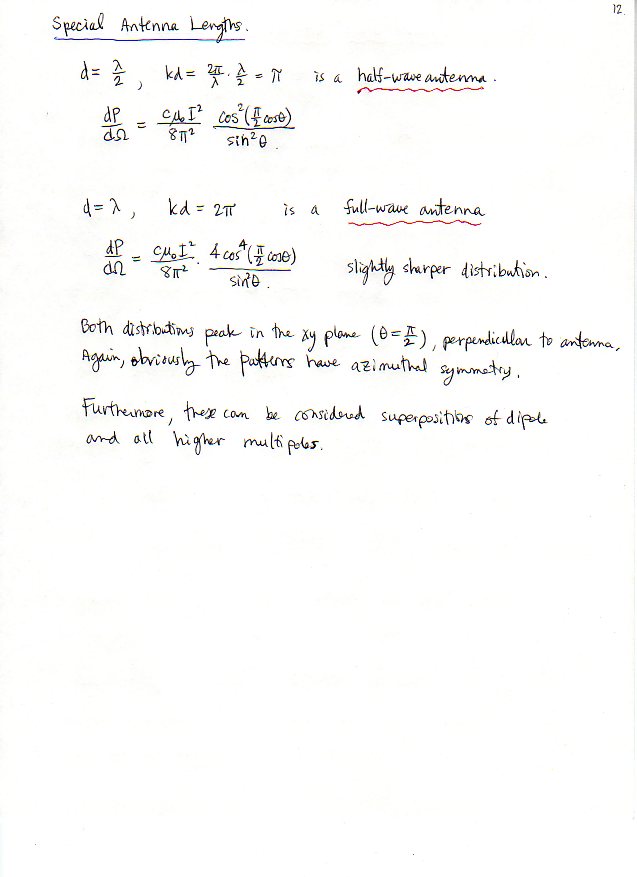 12.
Special Antenna Lengths.
d = λ/2 , kd = 2π/λ · λ/2 = π is a half-wave antenna.
dP/dΩ = cμ₀I²/8π² cos²(π/2 cosθ)/sin²θ.
d = λ , kd = 2π is a full-wave antenna
dP/dΩ = cμ₀I²/8π² · 4cos⁴(π/2 cosθ)/sin²θ. slightly sharper distribution.
Both distributions peak in the xy plane (θ = π/2), perpendicular to antenna.
Again, obviously the patterns have azimuthal symmetry.
Furthermore, these can be considered superpositions of dipole
and all higher multipoles.